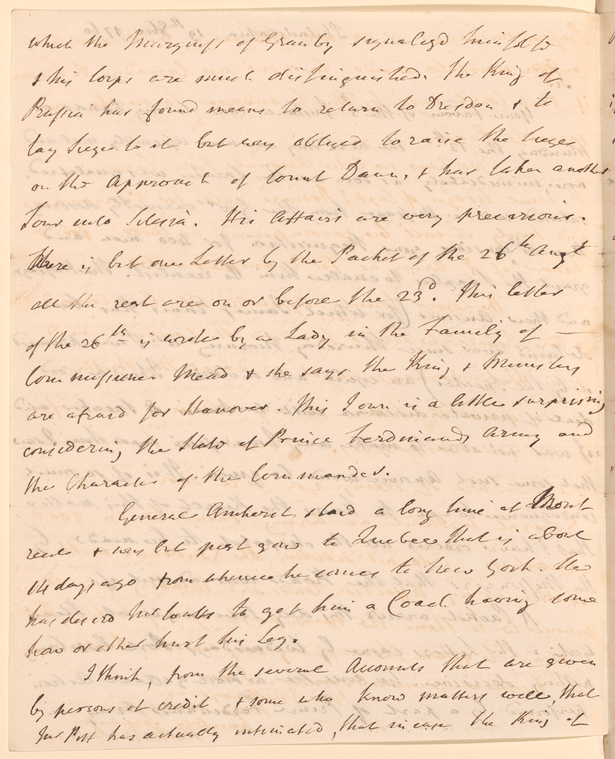 which the Marquiss of Granby signalized himself &
& his Corps are much distinguished. The King of
Prussia has found means to return to Dresden & to
lay Siege to it but was obliged to raise the Siege
on the Approach of Count Daun, & has taken another
Tour into Silesia. His Affairs are very precarious.
There is but one Letter by the Packet of the 26th Augt
all the rest are on or before the 23d. This letter
of the 26th is wrote by a Lady in the Family of —
Commissioner Mead & she says the King & Ministry
are afraid for Hanover. This I own is a little surprising
considering the State of Prince Ferdinands Army and
the Character of the Commander.
General Amherst staid a long time at Mont
real & was but just gone to Quebec that is about
14 days ago from whence he comes to New York. He
has desired to get him a Coach having some
how or other hurt his Leg.
I think, from the several Accounts that are given
by persons of credit & some who know matters well, that
Mr Pitt has actually intimated, that in case the King of